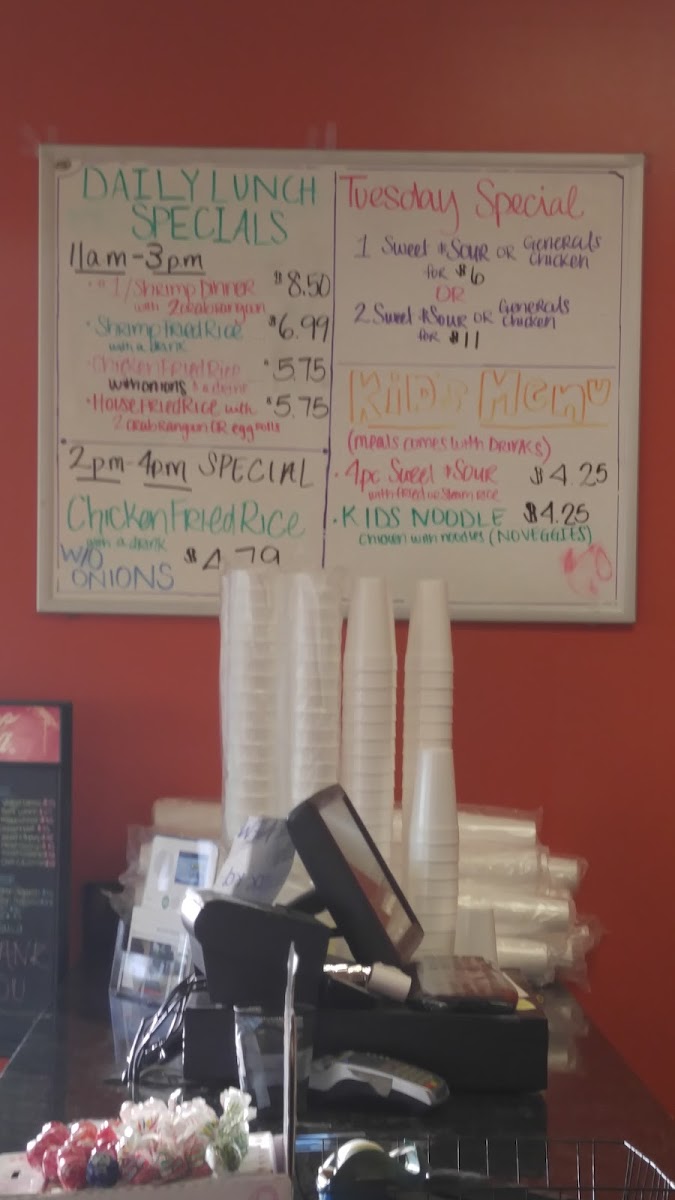 DAILY LUNCH
SPECIALS
11am-3pm
1/Shrimp Dinner $8.50
with 2 crab rangun
Shrimp Fried Rice $6.99
with a drink
Chicken Fried Rice $5.75
with onions
House Fried Rice with $5.75
2 crab Rangun OR egg rolls
2pm-4pm SPECIAL
Chicken Fried Rice
with a drink
W/O
ONIONS
$4.79
Tuesday Special
1 Sweet & Sour OR Generals
Chicken
for $6
OR
2 Sweet & Sour OR Generals
Chicken
for $11
Kids Menu
(meals comes with DRINKS)
4pc Sweet & Sour $4.25
with fried or steam rice
KIDS NOODLE $4.25
chicken with noodles (NO VEGGIES)